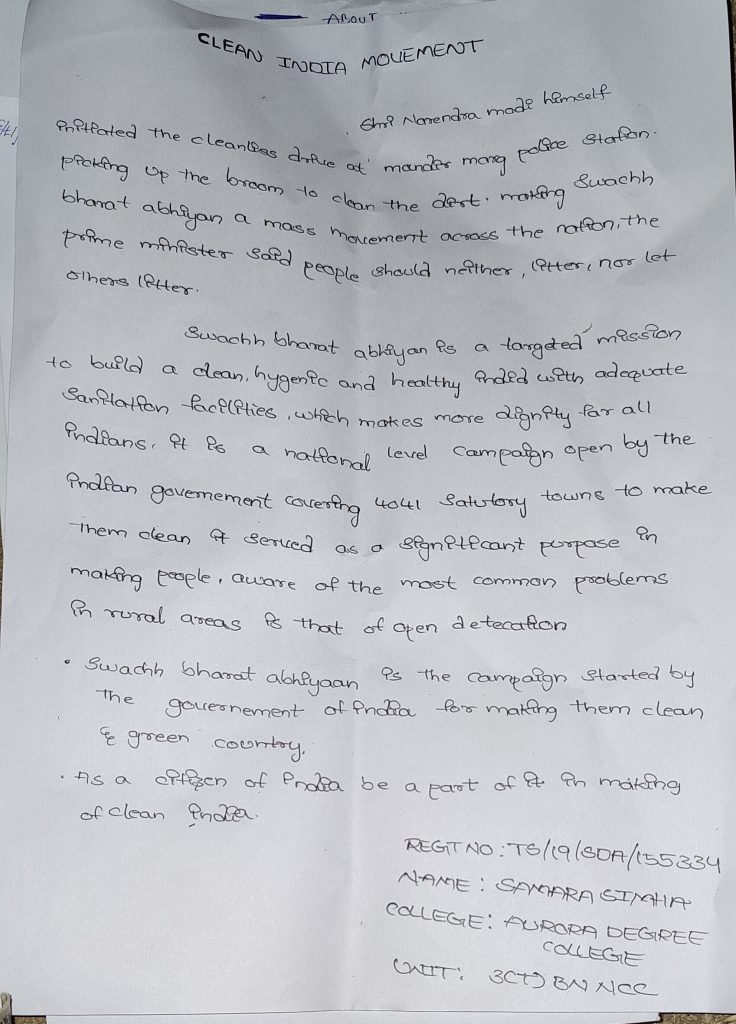 ABOUT
CLEAN INDIA MOVEMENT
Shri Narendra modi himself
initiated the cleanlies drive at mandir marg police station.
picking up the broom to clean the dirt. making Swachh
bharat abhiyan a mass movement across the nation, the
prime minister said people should neither, litter, nor let
others litter.
Swachh bharat abhiyan is a targeted mission
to build a clean, hygenic and healthy indid with adequate
Sanitation facilities, which makes more dignity far all
indians, it is a national level campaign open by the
indian governement covering 4041 Satutory towns to make
them clean it served as a significant purpose in
making people, aware of the most common problems
in rural areas is that of open detecation
• Swachh bharat abhiyaan is the campaign started by
the governement of india for making them clean
& green country.
• As a citizen of india be a part of it in making
of clean india.
REGT NO : TS/19/SDA/155334
NAME : SAMARA SIMHA
COLLEGE : AURORA DEGREE
COLLEGE
UNIT : 3(T) BN NCC